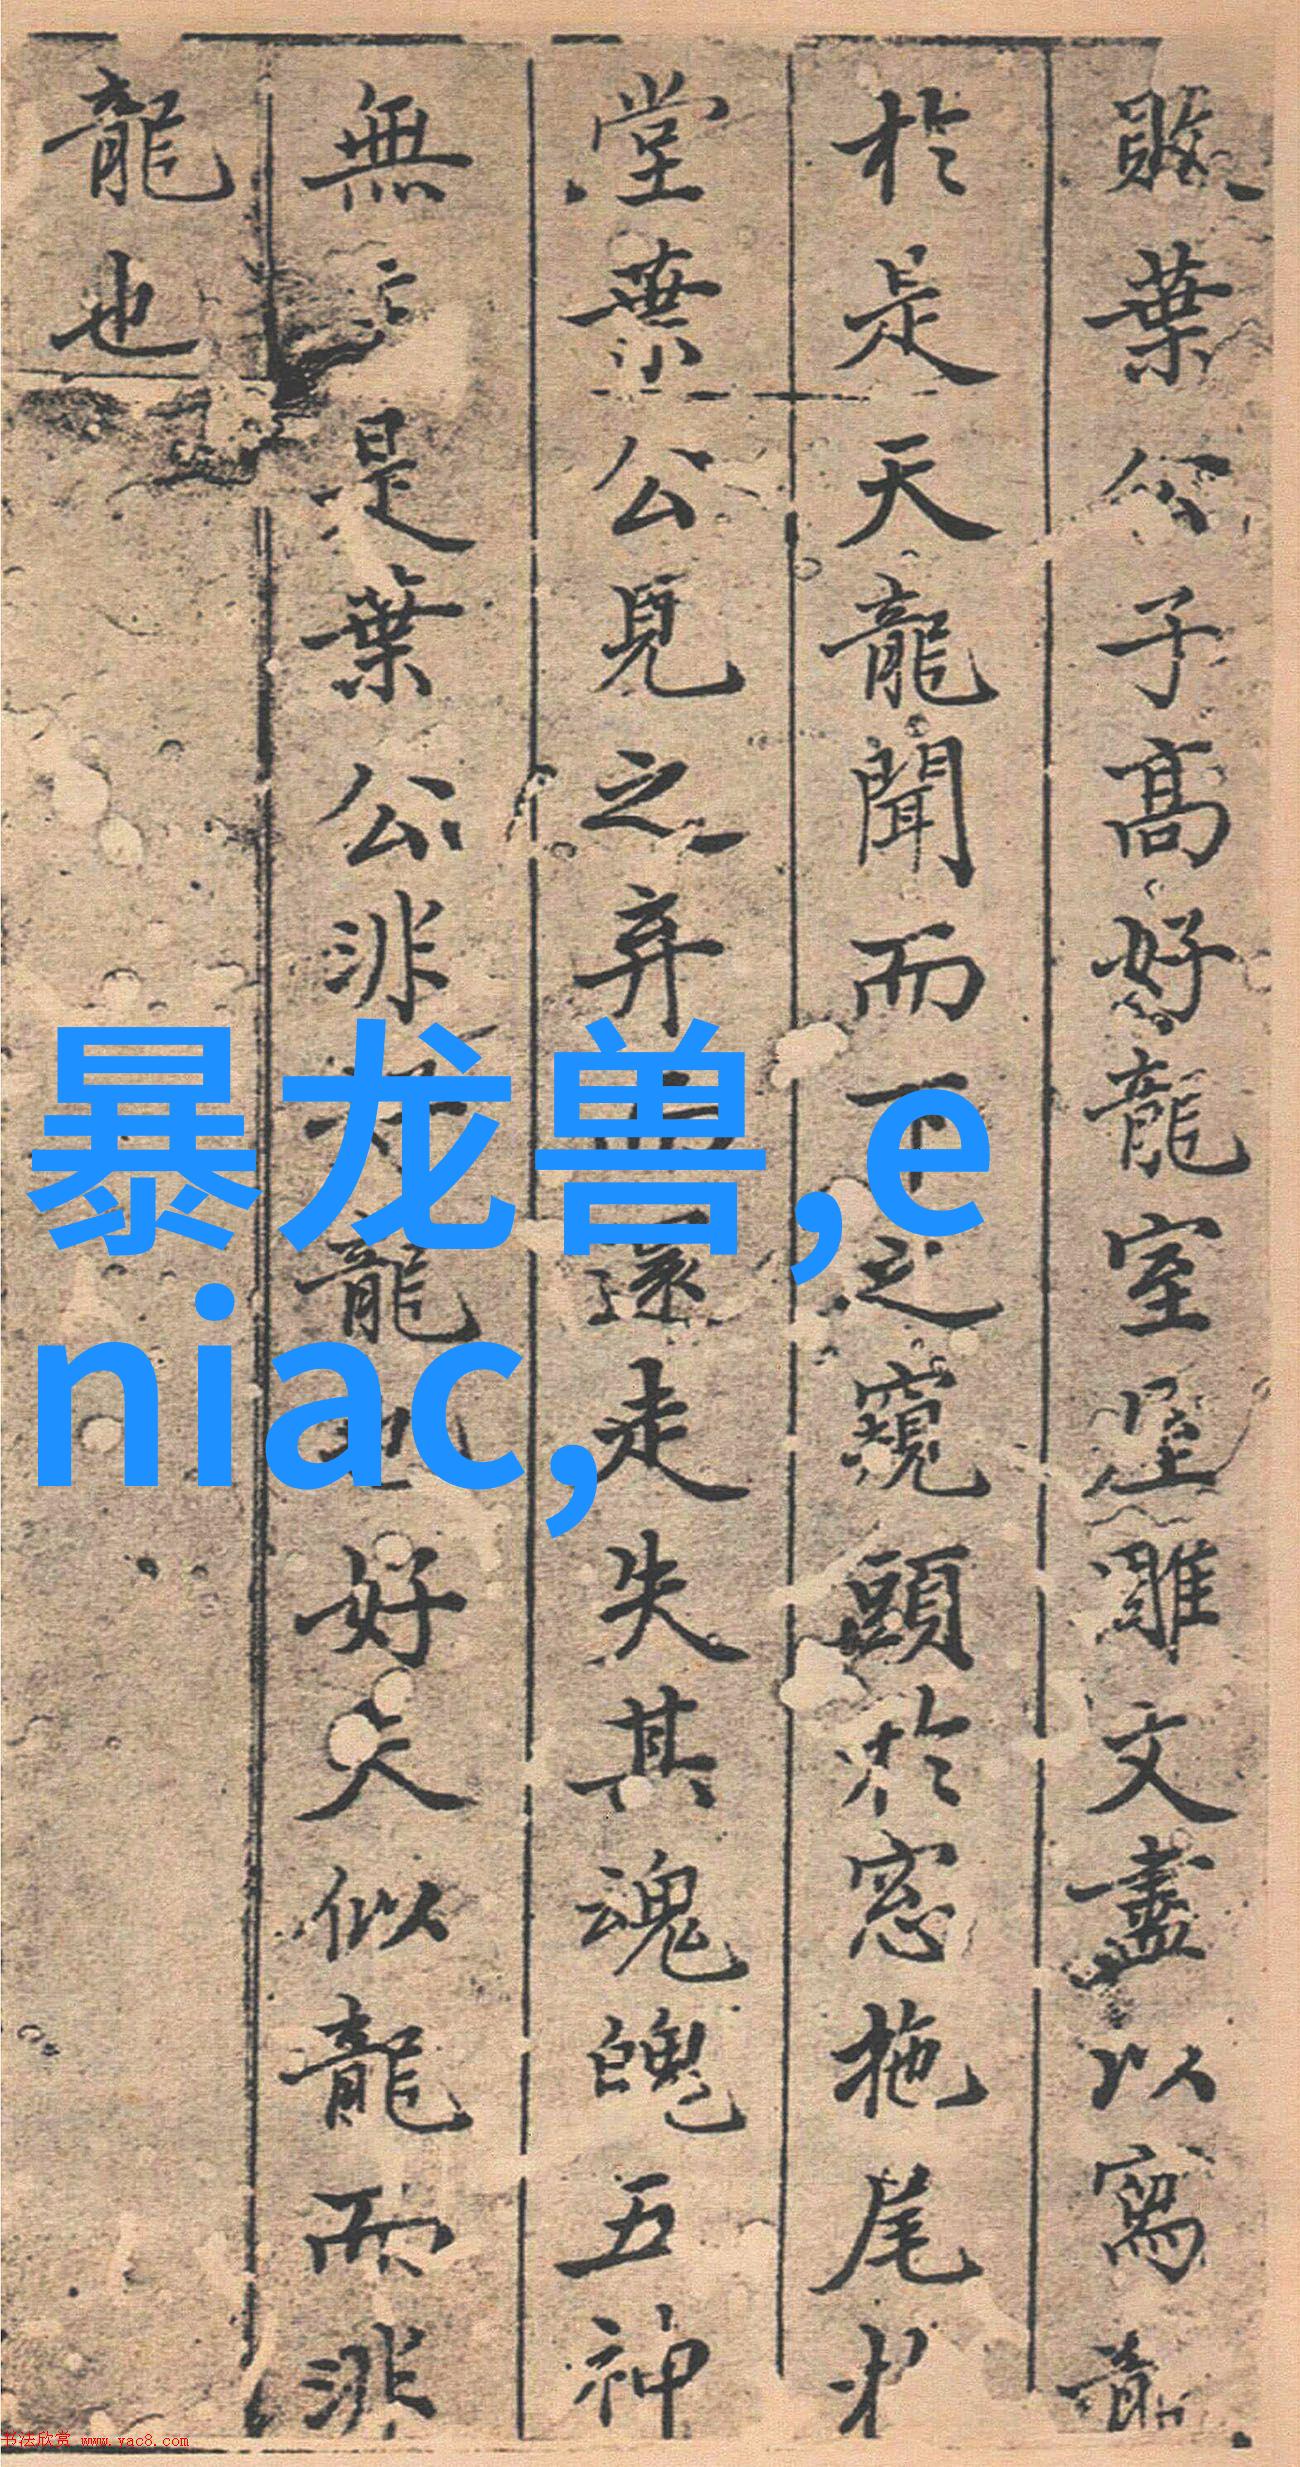 敗葉公子高好龍室屋雕文盡以寫龍
於是天龍聞而下之窺頭於窓拖尾於
堂葉公見之弃而還走失其魂魄五神
無主是葉公非好龍也好夫似龍而非
龍也
暴龙兽,e
niac,
书法欣赏 www.yac8.com